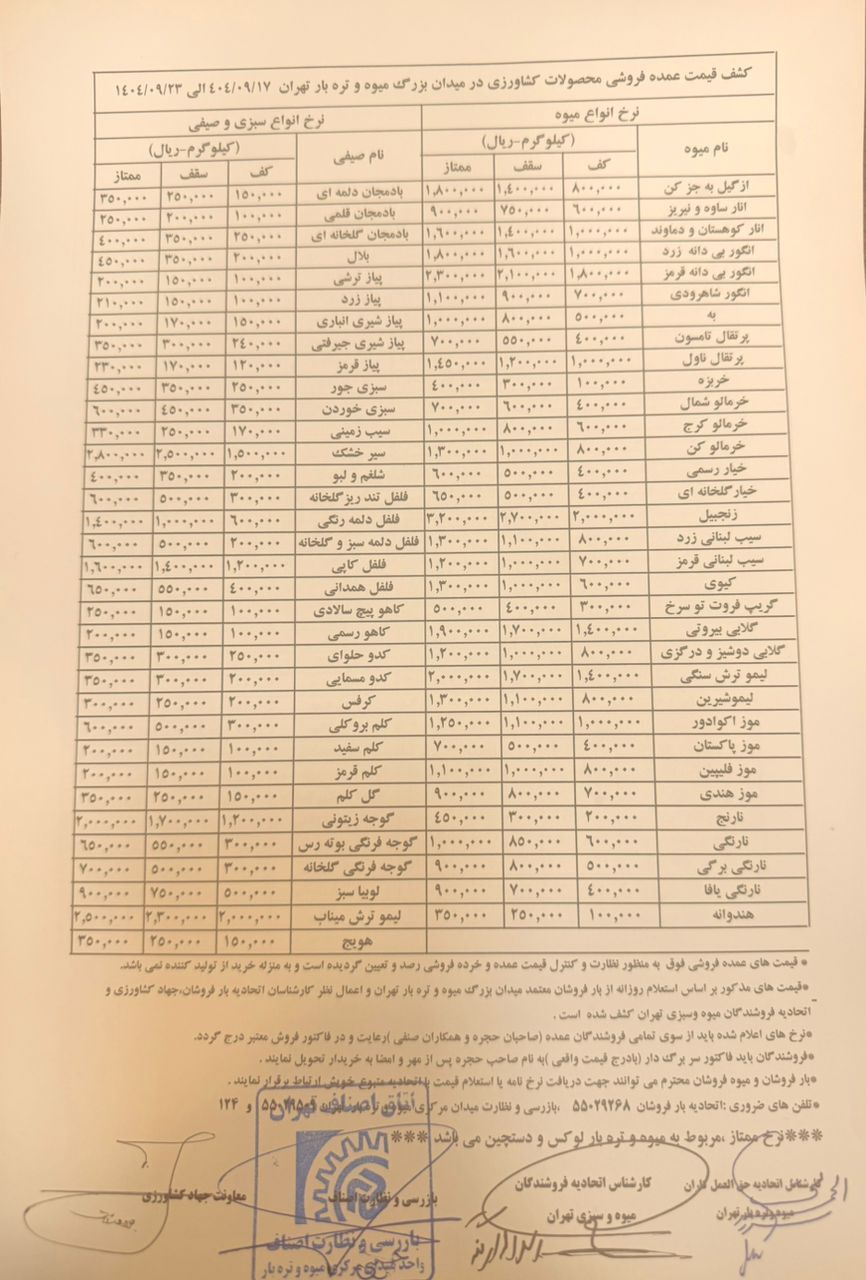 کشف قیمت عمده فروشی محصولات کشاورزی در میدان بزرگ میوه و تره بار تهران ۴۰۴/۰۹/۱۷ الی ۱۴۰۴/۰۹/۲۳
نرخ انواع میوه نرخ انواع سبزی و صیفی
نام میوه (کیلوگرم-ریال) نام صیفی (کیلوگرم-ریال)
کف سقف ممتاز کف سقف ممتاز
ازگیل به جز کن ۸۰۰,۰۰۰ ۱,۴۰۰,۰۰۰ ۱,۸۰۰,۰۰۰ بادمجان دلمه ای ۱۵۰,۰۰۰ ۲۵۰,۰۰۰ ۳۵۰,۰۰۰
انار ساوه و نیریز ۶۰۰,۰۰۰ ۷۵۰,۰۰۰ ۹۰۰,۰۰۰ بادمجان قلمی ۱۰۰,۰۰۰ ۲۰۰,۰۰۰ ۲۵۰,۰۰۰
انار کوهستان و دماوند ۱,۰۰۰,۰۰۰ ۱,۴۰۰,۰۰۰ ۱,۶۰۰,۰۰۰ بادمجان گلخانه ای ۲۵۰,۰۰۰ ۳۵۰,۰۰۰ ۴۰۰,۰۰۰
انگور بی دانه زرد ۱,۰۰۰,۰۰۰ ۱,۶۰۰,۰۰۰ ۱,۸۰۰,۰۰۰ بلال ۲۰۰,۰۰۰ ۳۵۰,۰۰۰ ۴۵۰,۰۰۰
انگور بی دانه قرمز ۱,۸۰۰,۰۰۰ ۲,۱۰۰,۰۰۰ ۲,۳۰۰,۰۰۰ پیاز ترشی ۱۰۰,۰۰۰ ۱۵۰,۰۰۰ ۲۰۰,۰۰۰
انگور شاهرودی ۷۰۰,۰۰۰ ۹۰۰,۰۰۰ ۱,۱۰۰,۰۰۰ پیاز زرد ۱۰۰,۰۰۰ ۱۵۰,۰۰۰ ۲۱۰,۰۰۰
به ۵۰۰,۰۰۰ ۸۰۰,۰۰۰ ۱,۰۰۰,۰۰۰ پیاز شیری انباری ۱۵۰,۰۰۰ ۱۷۰,۰۰۰ ۲۰۰,۰۰۰
پرتقال تامسون ۴۰۰,۰۰۰ ۵۵۰,۰۰۰ ۷۰۰,۰۰۰ پیاز شیری جیرفتی ۲۴۰,۰۰۰ ۳۰۰,۰۰۰ ۳۵۰,۰۰۰
پرتقال ناول ۱,۰۰۰,۰۰۰ ۱,۲۰۰,۰۰۰ ۱,۴۵۰,۰۰۰ پیاز قرمز ۱۲۰,۰۰۰ ۱۷۰,۰۰۰ ۲۳۰,۰۰۰
خربزه ۱۰۰,۰۰۰ ۳۰۰,۰۰۰ ۴۰۰,۰۰۰ سبزی جور ۲۵۰,۰۰۰ ۳۵۰,۰۰۰ ۴۵۰,۰۰۰
خرمالو شمال ۴۰۰,۰۰۰ ۶۰۰,۰۰۰ ۷۰۰,۰۰۰ سبزی خوردن ۳۵۰,۰۰۰ ۴۵۰,۰۰۰ ۶۰۰,۰۰۰
خرمالو کرج ۶۰۰,۰۰۰ ۸۰۰,۰۰۰ ۱,۰۰۰,۰۰۰ سیب زمینی ۱۷۰,۰۰۰ ۲۵۰,۰۰۰ ۳۳۰,۰۰۰
خرمالو کن ۸۰۰,۰۰۰ ۱,۰۰۰,۰۰۰ ۱,۳۰۰,۰۰۰ سیر خشک ۱,۵۰۰,۰۰۰ ۲,۵۰۰,۰۰۰ ۲,۸۰۰,۰۰۰
خیار رسمی ۴۰۰,۰۰۰ ۵۰۰,۰۰۰ ۶۰۰,۰۰۰ شلغم و لبو ۲۰۰,۰۰۰ ۳۵۰,۰۰۰ ۴۰۰,۰۰۰
خیارگلخانه ای ۴۰۰,۰۰۰ ۵۰۰,۰۰۰ ۶۵۰,۰۰۰ فلفل تند ریزگلخانه ۳۰۰,۰۰۰ ۵۰۰,۰۰۰ ۶۰۰,۰۰۰
زنجبیل ۲,۰۰۰,۰۰۰ ۲,۷۰۰,۰۰۰ ۳,۲۰۰,۰۰۰ فلفل دلمه رنگی ۶۰۰,۰۰۰ ۱,۰۰۰,۰۰۰ ۱,۴۰۰,۰۰۰
سیب لبنانی زرد ۸۰۰,۰۰۰ ۱,۱۰۰,۰۰۰ ۱,۳۰۰,۰۰۰ فلفل دلمه سبز و گلخانه ۲۰۰,۰۰۰ ۵۰۰,۰۰۰ ۶۰۰,۰۰۰
سیب لبنانی قرمز ۷۰۰,۰۰۰ ۱,۰۰۰,۰۰۰ ۱,۲۰۰,۰۰۰ فلفل کاپی ۱,۲۰۰,۰۰۰ ۱,۴۰۰,۰۰۰ ۱,۶۰۰,۰۰۰
کیوی ۶۰۰,۰۰۰ ۱,۰۰۰,۰۰۰ ۱,۳۰۰,۰۰۰ فلفل همدانی ۴۰۰,۰۰۰ ۵۵۰,۰۰۰ ۶۵۰,۰۰۰
گریپ فروت تو سرخ ۳۰۰,۰۰۰ ۴۰۰,۰۰۰ ۵۰۰,۰۰۰ کاهو پیچ سالادی ۱۰۰,۰۰۰ ۱۵۰,۰۰۰ ۲۵۰,۰۰۰
گلابی بیروتی ۱,۴۰۰,۰۰۰ ۱,۷۰۰,۰۰۰ ۱,۹۰۰,۰۰۰ کاهو رسمی ۱۰۰,۰۰۰ ۱۵۰,۰۰۰ ۲۰۰,۰۰۰
گلابی دوشیز و درگزی ۸۰۰,۰۰۰ ۱,۰۰۰,۰۰۰ ۱,۲۰۰,۰۰۰ کدو حلوای ۲۵۰,۰۰۰ ۳۰۰,۰۰۰ ۳۵۰,۰۰۰
لیمو ترش سنگی ۱,۴۰۰,۰۰۰ ۱,۷۰۰,۰۰۰ ۲,۰۰۰,۰۰۰ کدو مسمایی ۲۰۰,۰۰۰ ۳۰۰,۰۰۰ ۳۵۰,۰۰۰
لیموشیرین ۸۰۰,۰۰۰ ۱,۱۰۰,۰۰۰ ۱,۳۰۰,۰۰۰ کرفس ۲۰۰,۰۰۰ ۲۵۰,۰۰۰ ۳۰۰,۰۰۰
موز اکوادور ۱,۰۰۰,۰۰۰ ۱,۱۰۰,۰۰۰ ۱,۲۵۰,۰۰۰ کلم بروکلی ۳۰۰,۰۰۰ ۵۰۰,۰۰۰ ۶۰۰,۰۰۰
موز پاکستان ۴۰۰,۰۰۰ ۵۰۰,۰۰۰ ۷۰۰,۰۰۰ کلم سفید ۱۰۰,۰۰۰ ۱۵۰,۰۰۰ ۲۰۰,۰۰۰
موز فلیپین ۸۰۰,۰۰۰ ۱,۰۰۰,۰۰۰ ۱,۱۰۰,۰۰۰ کلم قرمز ۱۰۰,۰۰۰ ۱۵۰,۰۰۰ ۲۰۰,۰۰۰
موز هندی ۷۰۰,۰۰۰ ۸۰۰,۰۰۰ ۹۰۰,۰۰۰ گل کلم ۱۵۰,۰۰۰ ۲۵۰,۰۰۰ ۳۵۰,۰۰۰
نارنج ۲۰۰,۰۰۰ ۳۰۰,۰۰۰ ۴۵۰,۰۰۰ گوجه زیتونی ۱,۲۰۰,۰۰۰ ۱,۷۰۰,۰۰۰ ۲,۰۰۰,۰۰۰
نارنگی ۶۰۰,۰۰۰ ۸۵۰,۰۰۰ ۱,۰۰۰,۰۰۰ گوجه فرنگی بوته رس ۳۰۰,۰۰۰ ۵۵۰,۰۰۰ ۶۵۰,۰۰۰
نارنگی برگی ۵۰۰,۰۰۰ ۸۰۰,۰۰۰ ۹۰۰,۰۰۰ گوجه فرنگی گلخانه ۳۰۰,۰۰۰ ۵۰۰,۰۰۰ ۷۰۰,۰۰۰
نارنگی یافا ۴۰۰,۰۰۰ ۷۰۰,۰۰۰ ۹۰۰,۰۰۰ لوبیا سبز ۵۰۰,۰۰۰ ۷۵۰,۰۰۰ ۹۰۰,۰۰۰
هندوانه ۱۰۰,۰۰۰ ۲۵۰,۰۰۰ ۳۵۰,۰۰۰ لیمو ترش میناب ۲,۰۰۰,۰۰۰ ۲,۳۰۰,۰۰۰ ۲,۵۰۰,۰۰۰
هویج ۱۵۰,۰۰۰ ۲۵۰,۰۰۰ ۳۵۰,۰۰۰
* قیمت های عمده فروشی فوق به منظور نظارت و کنترل قیمت عمده و خرده فروشی رصد و تعیین گردیده است و به منزله خرید از تولید کننده نمی باشد.
*قیمت های مذکور بر اساس استعلام روزانه از بار فروشان معتمد میدان بزرگ میوه و تره بار تهران و اعمال نظر کارشناسان اتحادیه بار فروشان،جهاد کشاورزی و
اتحادیه فروشندگان میوه وسبزی تهران کشف شده است .
*نرخ های اعلام شده باید از سوی تمامی فروشندگان عمده (صاحبان حجره و همکاران صنفی )رعایت و در فاکتور فروش معتبر درج گردد.
*فروشندگان باید فاکتور سر برگ دار (بادرج قیمت واقعی )به نام صاحب حجره پس از مهر و امضا به خریدار تحویل نمایند .
*بار فروشان و میوه فروشان محترم می توانند جهت دریافت نرخ نامه یا استعلام قیمت با اتحادیه متبوع خویش ارتباط برقرار نمایند .
*تلفن های ضروری :اتحادیه بار فروشان ۵۵۰۲۹۲۶۸ ،بازرسی و نظارت میدان مرکزی میوه و تره بار و ۱۲۴
***نرخ ممتاز ،مربوط به میوه و تره بار لوکس و دستچین می باشد ***
کارشناس اتحادیه حق العمل کاران کارشناس اتحادیه فروشندگان بازرسی و نظارت اصناف معاونت جهاد کشاورزی
میوه و تره بار تهران میوه و سبزی تهران
اتاق اصناف تهران
بازرسی و نظارت اصناف
واحد میدان مرکزی میوه و تره بار